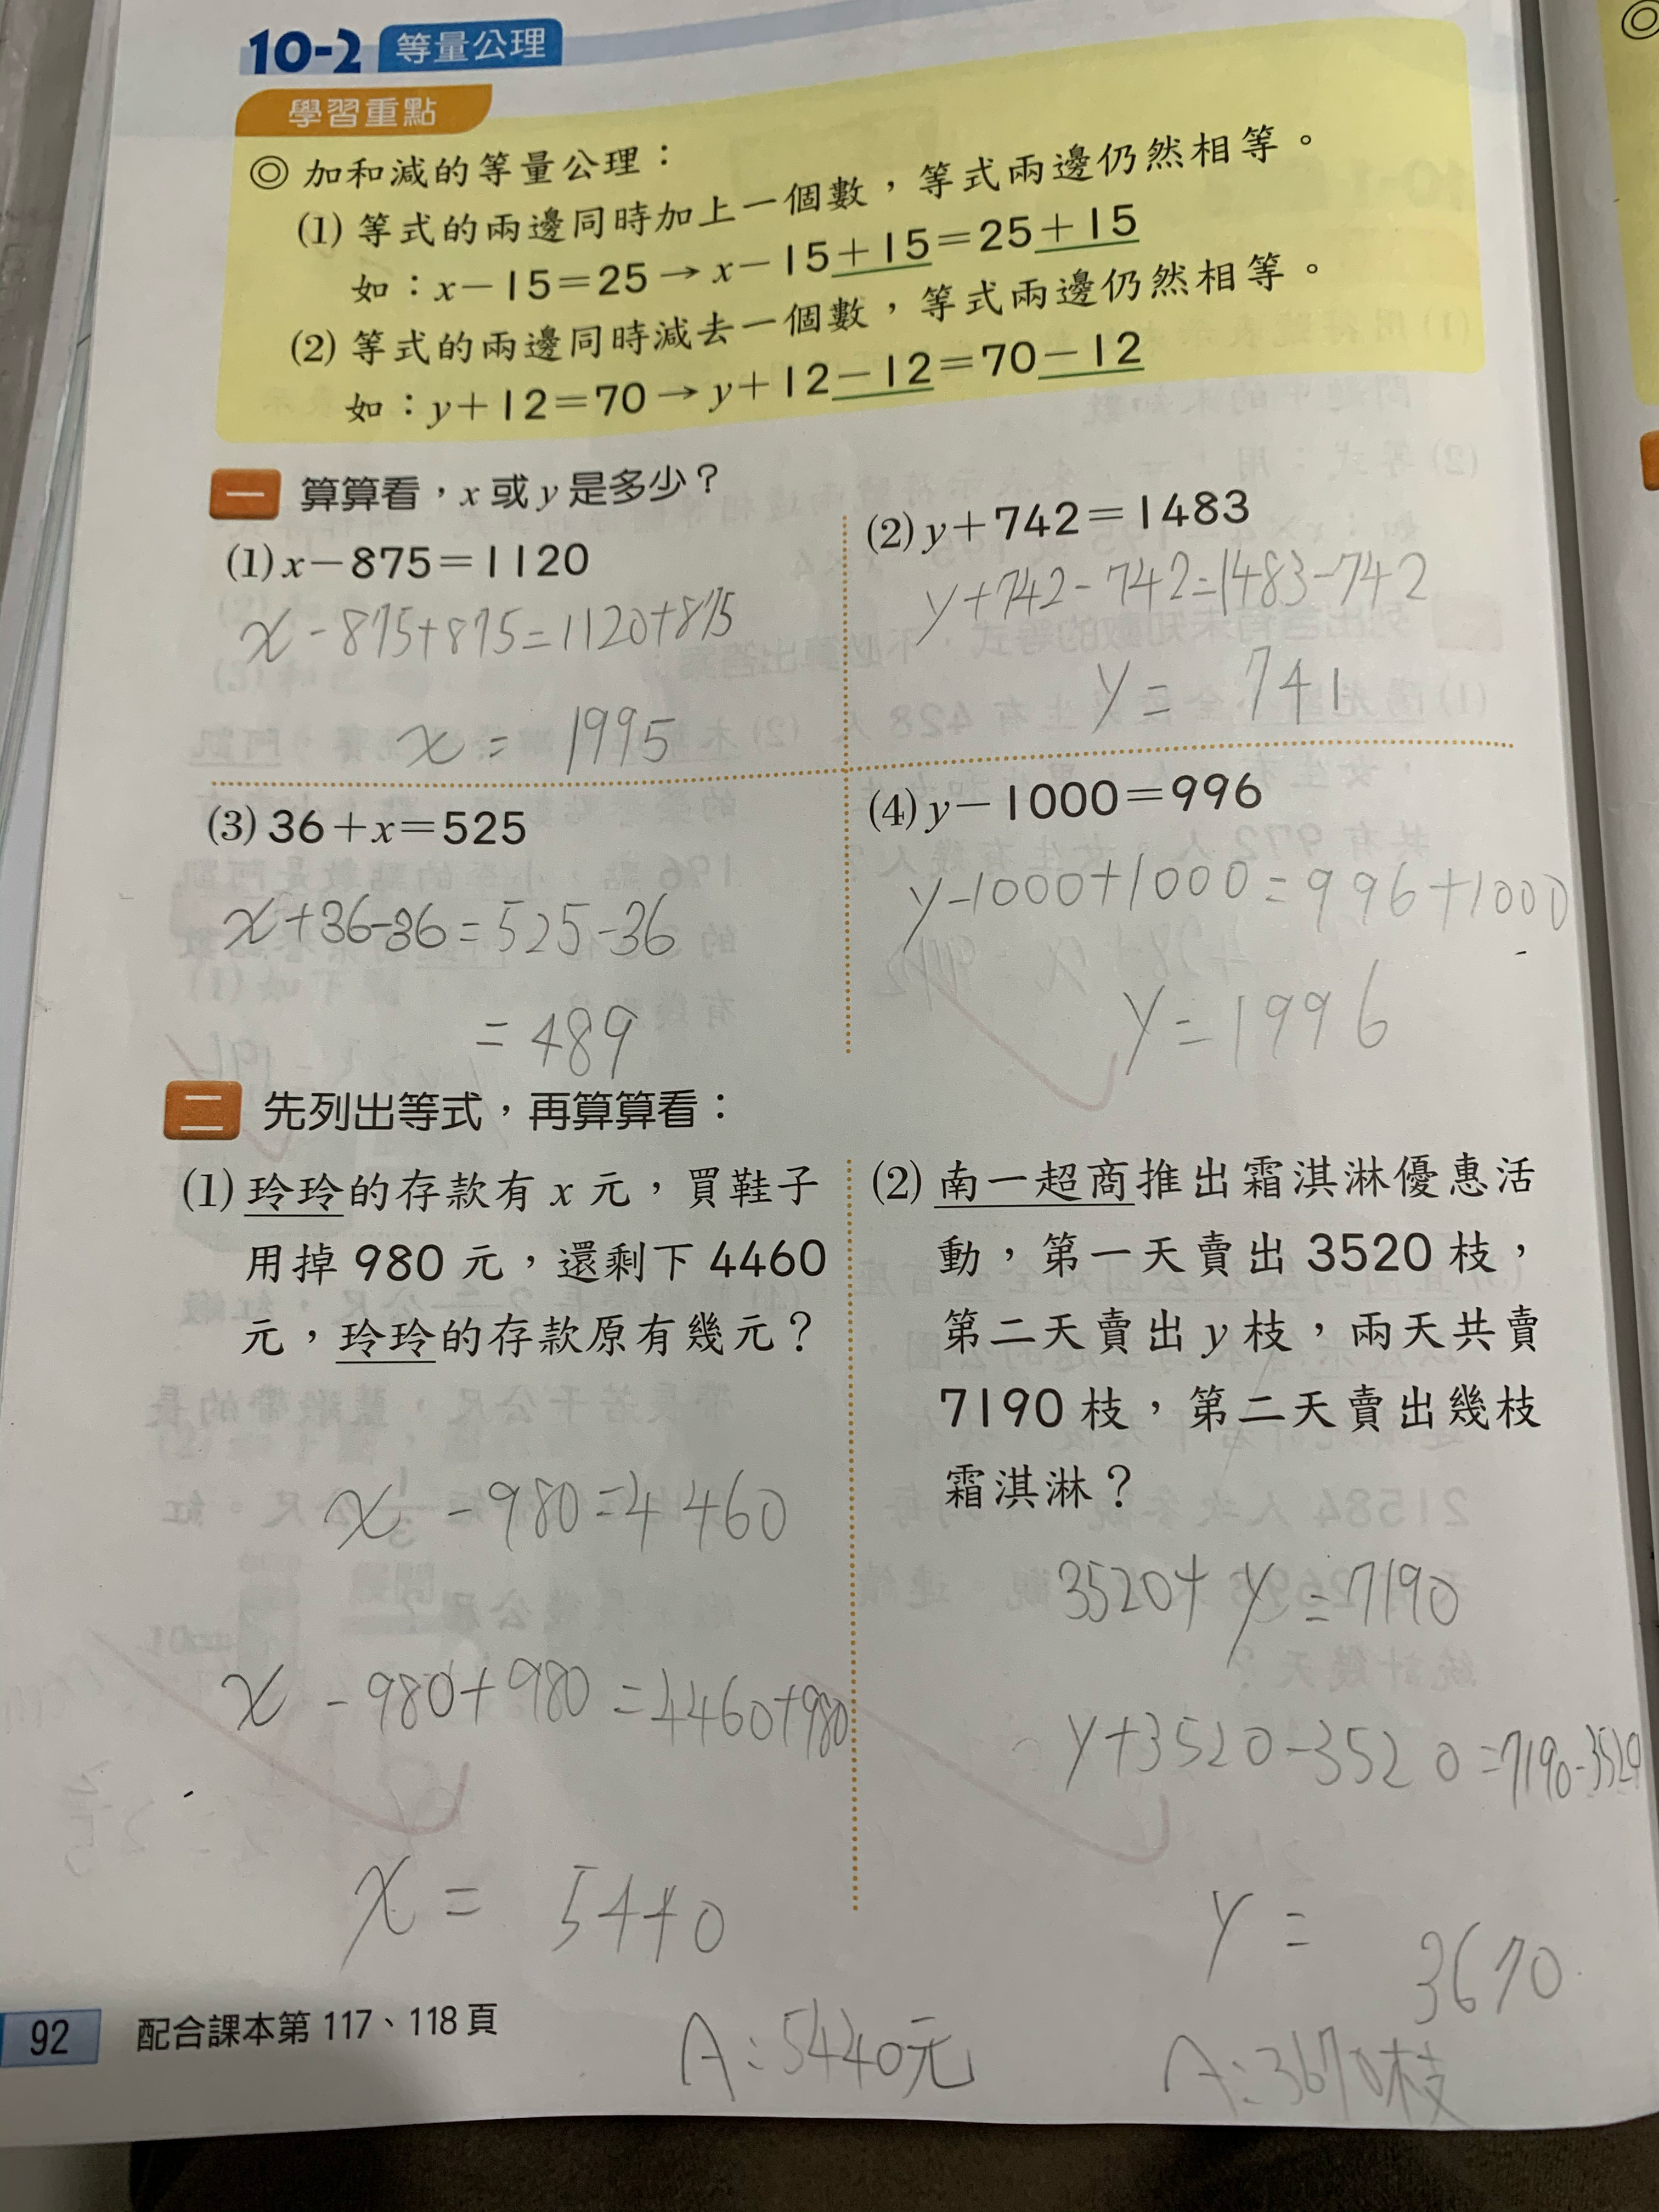 10-2 等量公理
學習重點
◎ 加和減的等量公理：
(1) 等式的兩邊同時加上一個數，等式兩邊仍然相等。
如：x－15＝25→x－15＋15＝25＋15
(2) 等式的兩邊同時減去一個數，等式兩邊仍然相等。
如：y＋12＝70→y＋12－12＝70－12
一 算算看，x 或 y 是多少？
(1) x－875＝1120
x-875+875=1120+875
x = 1995
(2) y＋742＝1483
y+742-742=1483-742
y = 741
(3) 36＋x＝525
x+36-36=525-36
= 489
(4) y－1000＝996
y-1000+1000=996+1000
y=1996
二 先列出等式，再算算看：
(1) 玲玲的存款有 x 元，買鞋子
用掉 980 元，還剩下 4460
元，玲玲的存款原有幾元？
x -980=4460
x -980+980=4460+980
x = 5440
A:5440元
(2) 南一超商推出霜淇淋優惠活
動，第一天賣出 3520 枝，
第二天賣出 y 枝，兩天共賣
7190 枝，第二天賣出幾枝
霜淇淋？
3520+y=7190
y+3520-3520=7190-3520
y = 3670
A:3670枝
92 配合課本第 117、118 頁